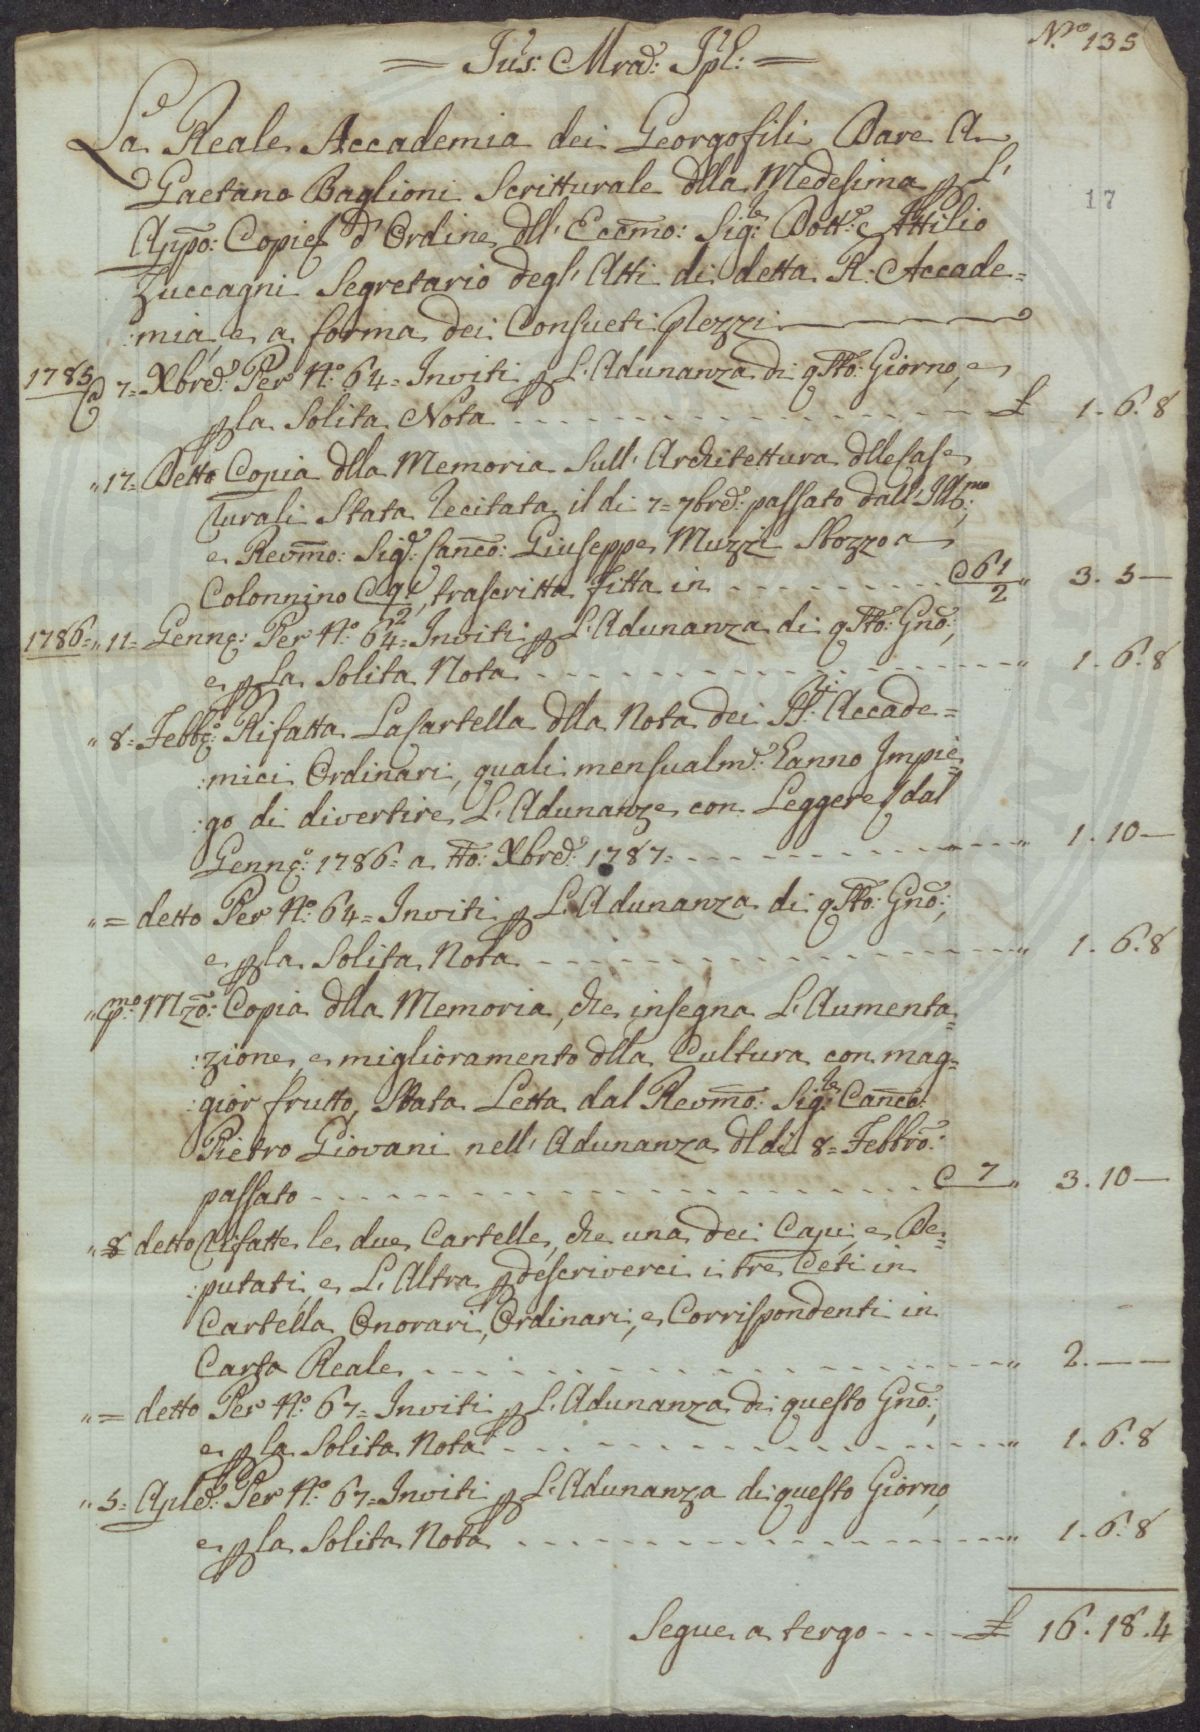 N.º 135
= Jus: Mrad: Jpl: =
La Reale Accademia dei Georgofili Dare A
Gaetano Baglioni Scritturale dlla Medesima p L'
17
Apño: Copie d'Ordine dll' Eccmo: Sigre: Dott.e Attilio
Zuccagni Segretario degl' Atti di detta R. Accade=
:mia, e a forma dei Consueti Prezzi
1785 @ 7= Xbre: Per N.º 64= Inviti p L'Adunanza di qsto: Giorno, e
p la Solita Nota - - - £ 1. 6. 8
" 17= Detto Copia dlla Memoria Sull' Architettura dlle Case
Rurali Stata Recitata il di 7= 7bre: passato dall' Illmo:
e Revmo: Sigr: Canco: Giuseppe Muzzi Sbozzo a
Colonnino C qi, trascritta fitta in - - - C 6 1/2 " 3. 5 —
1786= " 11= Genno: Per N.º 64= Inviti p L'Adunanza di qsto: Gno:,
e p La Solita Nota - - - " 1. 6. 8
" 8= Febbo: Rifatta La Cartella dlla Nota dei SSri: Accade=
:mici Ordinari, quali mensualme: hanno Impie=
:go di divertire L'Adunanze con Leggere dal
Genno: 1786= a tto: Xbre: 1787= - - - " 1. 10 —
" = detto Per N.º 64= Inviti p L'Adunanza di qsto: Gno:,
e p la Solita Nota - - - " 1. 6. 8
" pmo: Mzo: Copia dlla Memoria, che insegna L'Aumenta=
:zione, e miglioramento dlla Cultura con mag=
:gior frutto, Stata Letta dal Revmo: Sigre: Canco:
Pietro Giovani nell' Adunanza dl di 8= Febbro:
passato - - - C 7 " 3. 10 —
" 8 detto Rifatte le due Cartelle, che una dei Capi, e De=
:putati, e L'Altra p descriverci i tre Ceti in
Cartella Onorari, Ordinari, e Corrispondenti in
Carta Reale - - - " 2. — —
" = detto Per N.º 67= Inviti p L'Adunanza di questo Gno:,
e p la Solita Nota - - - " 1. 6. 8
" 5= Aple: Per N.º 67= Inviti p L'Adunanza di questo Giorno,
e p la Solita Nota - - - " 1. 6. 8
Segue a tergo - - - £ 16. 18. 4